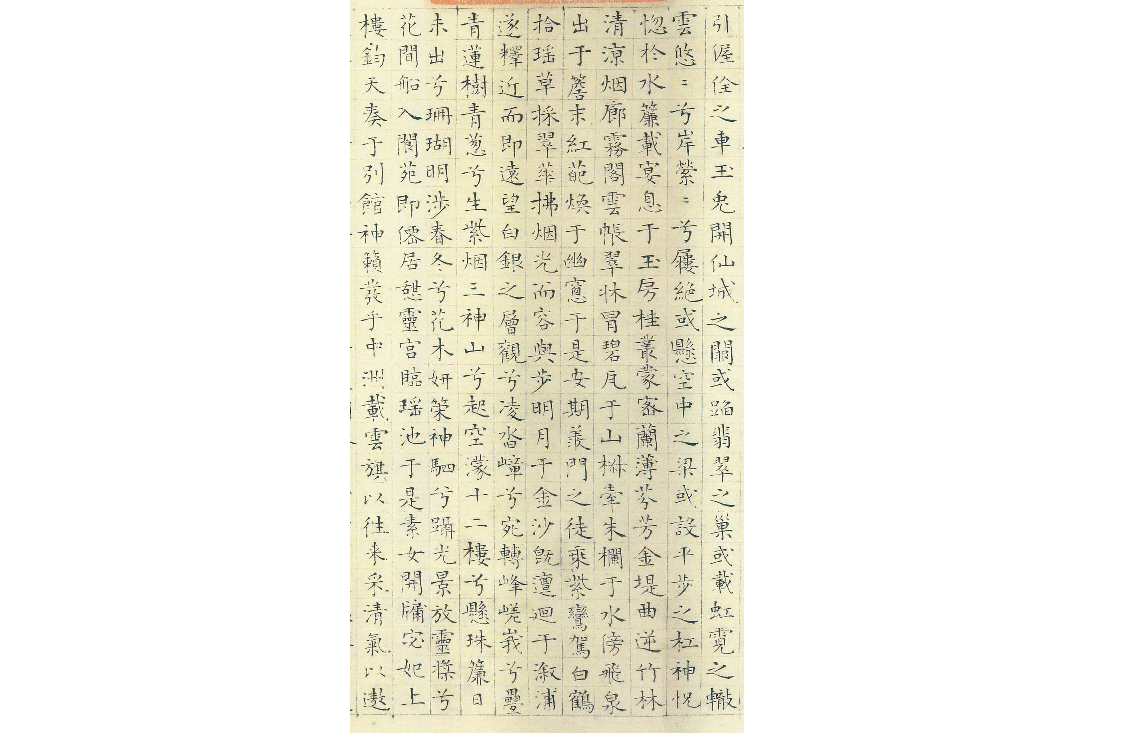 引偓佺之車玉兔開仙城之闕或蹈翡翠之巢或載虹霓之轍
雲悠〻兮岸縈〻兮屧絶或懸空中之梁或設平步之杠神怳
惚於水簾載宴息于玉房桂叢蒙密蘭薄芬芳金堤曲逆竹林
清涼烟廊霧閣雲帳翠牀冐碧瓦于山椒牽朱欄于水傍飛泉
出于簷末紅葩煥于幽窓于是安期羨門之徒乗紫鸞駕白鶴
拾瑶草採翠華拂烟光而容與步明月于金沙旣邅廻于溆浦
遂釋近而即遠望白銀之層觀兮凌沓嶂兮宛轉峰嵯峩兮疊
青蓮樹青葱兮生紫烟三神山兮起空濛十二樓兮懸珠簾日
未出兮珊瑚明涉春冬兮花木妍策神駟兮躡光景放靈槳兮
花間船入閬苑即僊居憇靈宮臨瑶池于是素女開牖宓妃上
樓鈞天奏于別館神籟發乎中洲載雲旗以徃来采清氣以遨